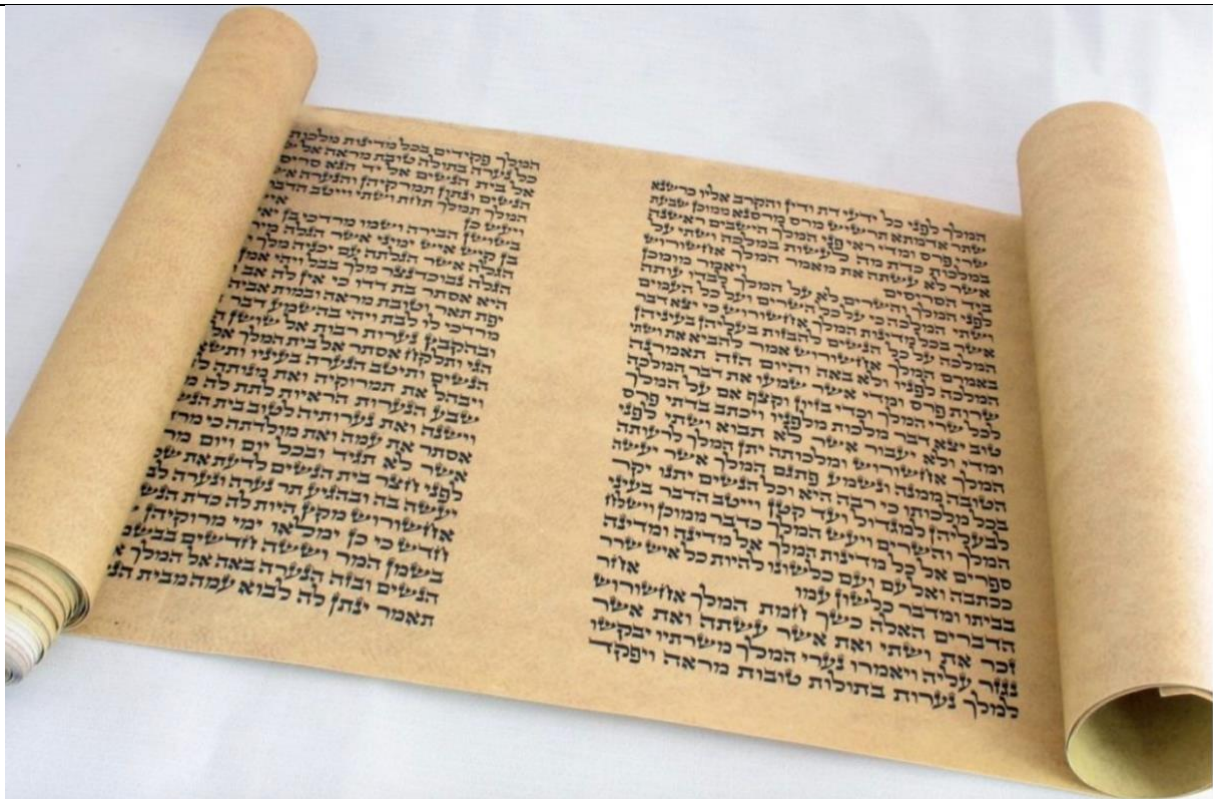 המלך לפני כל ידעי דת ודין והקרב אליו כרשנא
שתר אדמתא תרשיש מרס מרסנא ממוכן שבעת
שרי פרס ומדי ראי פני המלך הישבים ראישנה
במלכות כדת מה לעשות במלכה ושתי על
אשר לא עשתה את מאמר המלך אחשורוש
ביד הסריסים ויאמר מומכן
לפני המלך והשרים לא על המלך לבדו עותה
ושתי המלכה כי על כל השרים ועל כל העמים
אשר בכל מדינות המלך אחשורוש כי יצא דבר
המלכה על כל הנשים להבזות בעליהן בעיניהן
באמרם המלך אחשורוש אמר להביא את ושתי
המלכה לפניו ולא באה והיום הזה תאמרנה
שרות פרס ומדי אשר שמעו את דבר המלכה
לכל שרי המלך וכדי בזיון וקצף אם על המלך
טוב יצא דבר מלכות מלפניו ויכתב בדתי פרס
ומדי ולא יעבור אשר לא תבוא ושתי לפני
המלך אחשורוש ומלכותה יתן המלך לרעותה
הטובה ממנה ונשמע פתגם המלך אשר יעשה
בכל מלכותו כי רבה היא וכל הנשים יתנו יקר
לבעליהן למגדול ועד קטן וייטב הדבר בעיני
המלך והשרים ויעש המלך כדבר ממוכן וישלח
ספרים אל כל מדינות המלך אל מדינה ומדינה
ככתבה ואל עם ועם כלשונו להיות כל איש שרר
בביתו ומדבר כלשון עמו אחר
הדברים האלה כשך חמת המלך אחשורוש
זכר את ושתי ואת אשר עשתה ואת אשר
נגזר עליה ויאמרו נערי המלך משרתיו יבקשו
למלך נערות בתולות טובות מראה ויפקד
המלך פקידים בכל מדינות מלכותו
כל נערה בתולה טובת מראה אל
אל בית הנשים אל יד הגא סריס
הנשים ונתון תמרקיהן והנערה
המלך תמלך תחת ושתי וייטב הדבר
ויעש כן
בשושן הבירה ושמו מרדכי בן
בן קיש איש ימיני אשר הגלה
הגלה אשר הגלתה עם יכניה מלך
הגלה נבוכדנצר מלך בבל ויהי אמן
היא אסתר בת דדו כי אין לה אב
יפת תאר וטובת מראה ובמות אביה
מרדכי לו לבת ויהי בהשמע דבר
ובהקבץ נערות רבות אל שושן
הגי ותלקח אסתר אל בית המלך אל
הנשים ותיטב הנערה בעיניו
ויבהל את תמרוקיה ואת מנותה
שבע הנערות הראיות לתת לה
וישנה ואת נערותיה לטוב בית
אסתר את עמה ואת מולדתה כי
אשר לא תגיד ובכל יום ויום
לפני חצר בית הנשים לדעת את
יעשה בה ובהגיע תר נערה ונערה
אחשורוש מקץ היות לה כדת
חדש כי כן ימלאו ימי מרוקיהן
בשמן המר וששה חדשים
הנשים ובזה הנערה באה אל המלך
תאמר ינתן לה לבוא עמה מבית